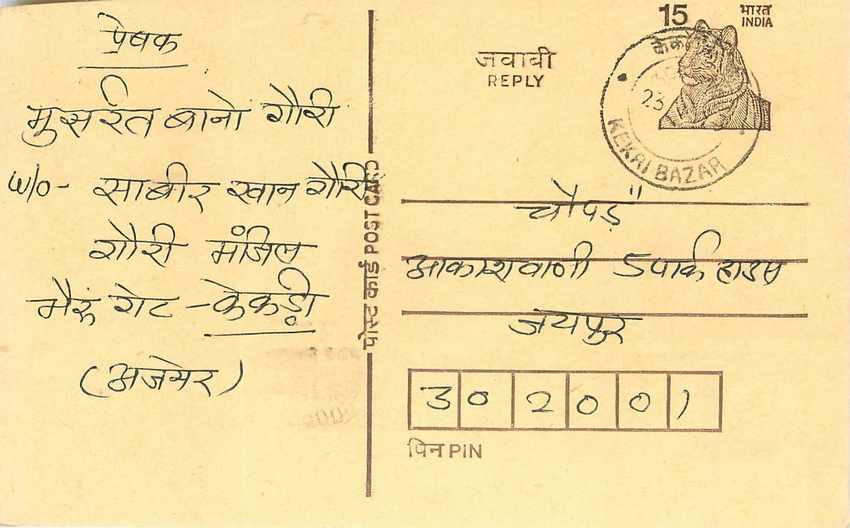 प्रेषक
मुसर्रत बानो गौरी
W/o- साबीर खान गौरी
गौरी मंजिल
भैरु गेट - केकड़ी
(अजमेर)
पोस्ट कार्ड POST CARD
15
भारत
INDIA
जवाबी
REPLY
23
KEKRI BAZAR
"चौपड़"
आकाशवाणी 5 पार्क हाउस
जयपुर
302001
पिन PIN